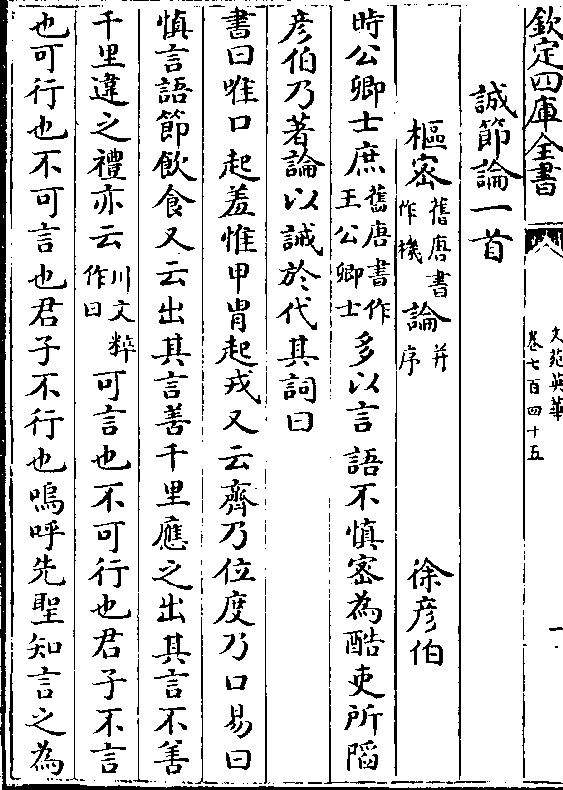 欽定四庫全書
文苑英華
卷七百四十五
一
誡節論一首
樞密舊唐書作機論并序
徐彦伯
時公卿士庶舊唐書作王公卿士多以言語不慎密為酷吏所陷
彦伯乃著論以誡於代其詞曰
書曰唯口起羞惟甲胄起戎又云齊乃位度乃口易曰
慎言語節飲食又云出其言善千里應之出其言不善
千里違之禮亦云川文粹作曰可言也不可行也君子不言
也可行也不可言也君子不行也嗚呼先聖知言之為